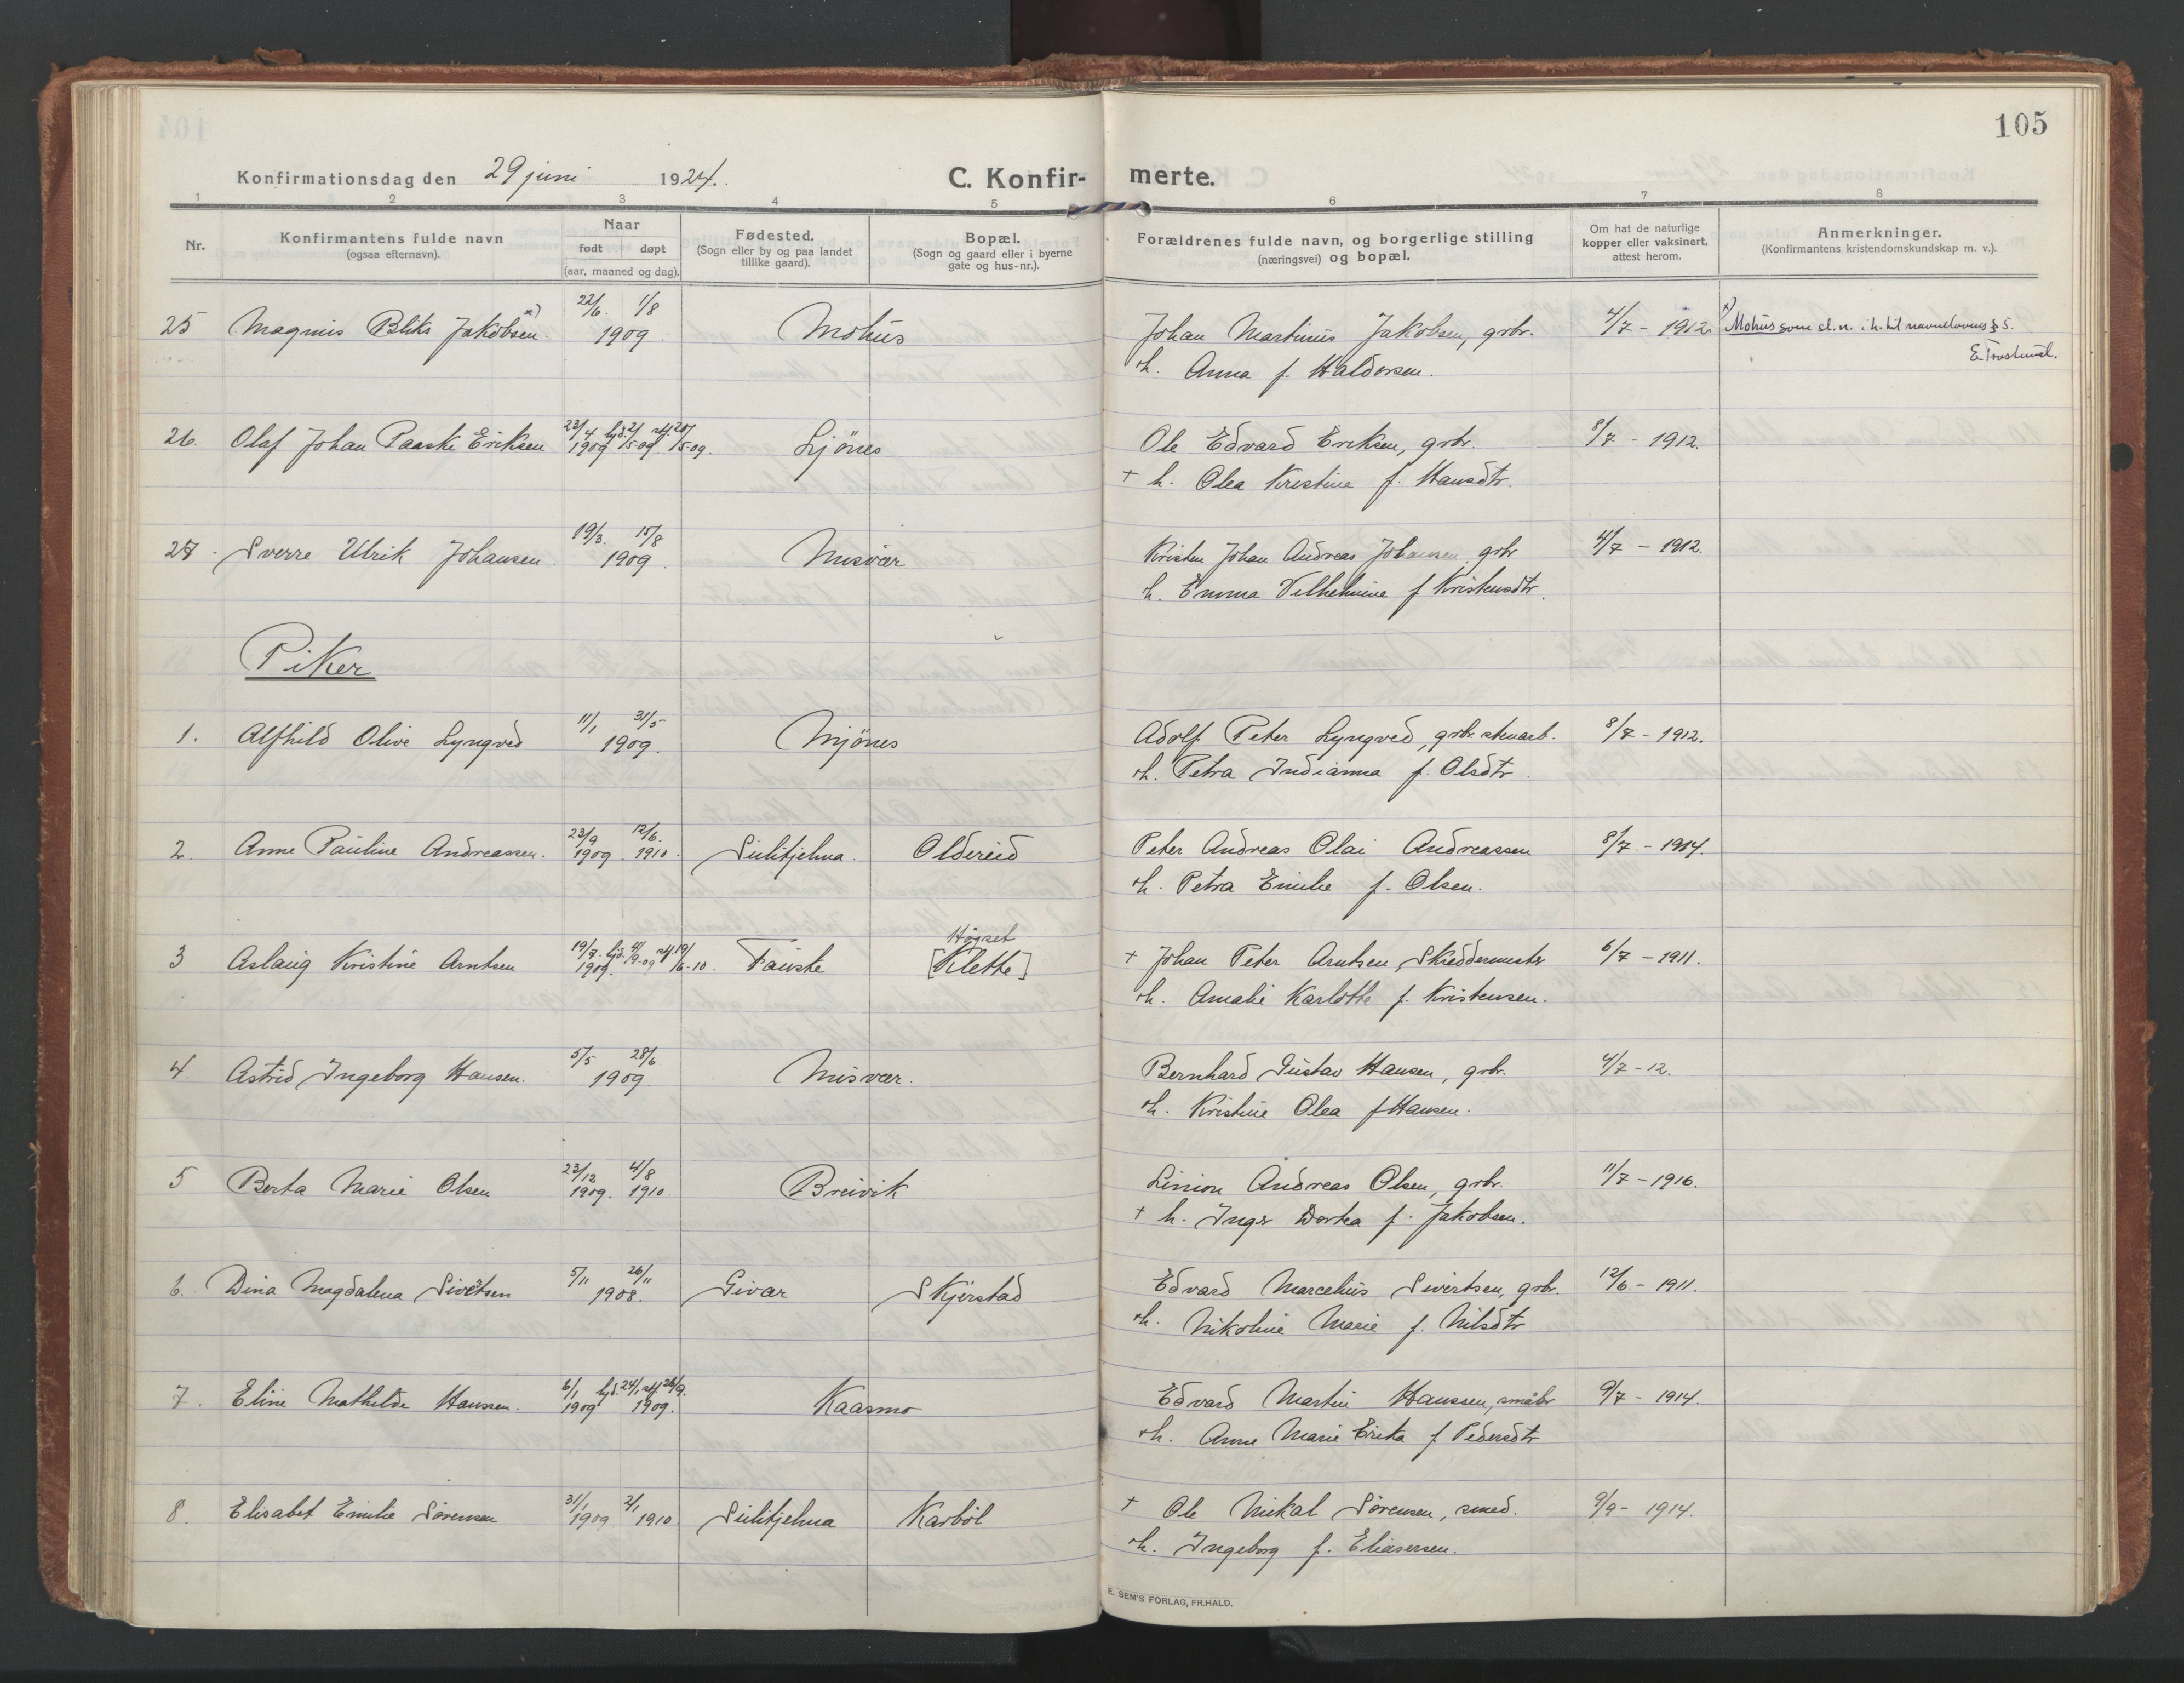 105
Konfirmationsdag den 29 juni 1924.
C. Konfir- merte.
1 2 3 4 5 6 7 8
Nr.
Konfirmantens fulde navn
(ogsaa efternavn).
Naar
født døpt
(aar, maaned og dag).
Fødested.
(Sogn eller by og paa landet
tillike gaard).
Bopæl.
(Sogn og gaard eller i byerne
gate og hus-nr.).
Forældrenes fulde navn, og borgerlige stilling
(næringsvei) og bopæl.
Om hat de naturlige
kopper eller vaksinert,
attest herom.
Anmerkninger.
(Konfirmantens kristendomskundskap m. v.).
22/6. 1/8
25 Magnus Bliks Jakobsen x) 1909 Mohus Johan Martinus Jakobsen, grbr. 4/7 - 1912. x) Mohus som sl.n. i h. til navnelovens § 5.
h. Anna f. Haldorsen. E. Trostund.
23/4 hjd. 2/ stf 20/
26. Olaf Johan Paaske Eriksen 1909 /5-09. /5-09. Ljönes Ole Edvard Eriksen, grbr. 8/7 - 1912.
+ h. Olea Kristine f. Hansdtr.
19/3. 15/8
27. Sverre Ulrik Johansen 1909. Misvær Kristen Johan Andreas Johansen grbr 4/7 - 1912.
h. Emma Vilhelmine f Kristensdtr.
Piker
11/1 31/5
1. Alfhild Olive Lyngved 1909. Mjönes Adolf Peter Lyngved, grbr. stenarb. 8/7 - 1912.
h. Petra Indianna f. Olsdtr.
23/9 12/6.
2. Anne Pauline Andreassen. 1909. 1910. Sulitjelma. Oldereid Peter Andreas Olai Andreassen 8/7 - 1914.
h. Petra Emilie f. Olsen.
19/7. hjd. 4/ stf 19/ Högset
3 Aslaug Kristine Arntsen 1909. /9-09 /6-10. Fauske [Klette] + Johan Peter Arntsen, Skreddermester 6/7 - 1911.
h. Amalie Karlotte f. Kristensen.
5/5 28/6
4. Astrid Ingeborg Hansen. 1909. Misvær. Bernhard Gustav Hansen, grbr. 4/7 - 12.
h. Kristine Olea f Hansen.
23/12 4/8
5 Berta Marie Olsen 1909. 1910. Breivik Linion Andreas Olsen, grbr. 11/7 - 1916.
+ h. Inger Dorka f. Jakobsen.
5/11 26/11
6. Dina Magdalena Sivertsen 1908. Givær Skjerstad Edvard Marcelius Sivertsen, grbr. 12/6 - 1911.
h. Nikoline Marie f. Nilsdtr
6/1 hjd. 24/1 stf 26/9.
7. Eline Mathilde Hanssen. 1909 1909. Kaasmo Edvard Martin Hanssen, småbr 9/7 - 1914.
h. Anne Marie Erika f Pedersdtr
31/1 2/1
8. Elisabet Emilie Sörensen 1909 1910 Sulitjelma Karböl + Ole Mikal Sörensen, smed. 9/9 - 1914.
h. Ingeborg f. Eliasersen.
E. SEM'S FORLAG, FR.HALD.